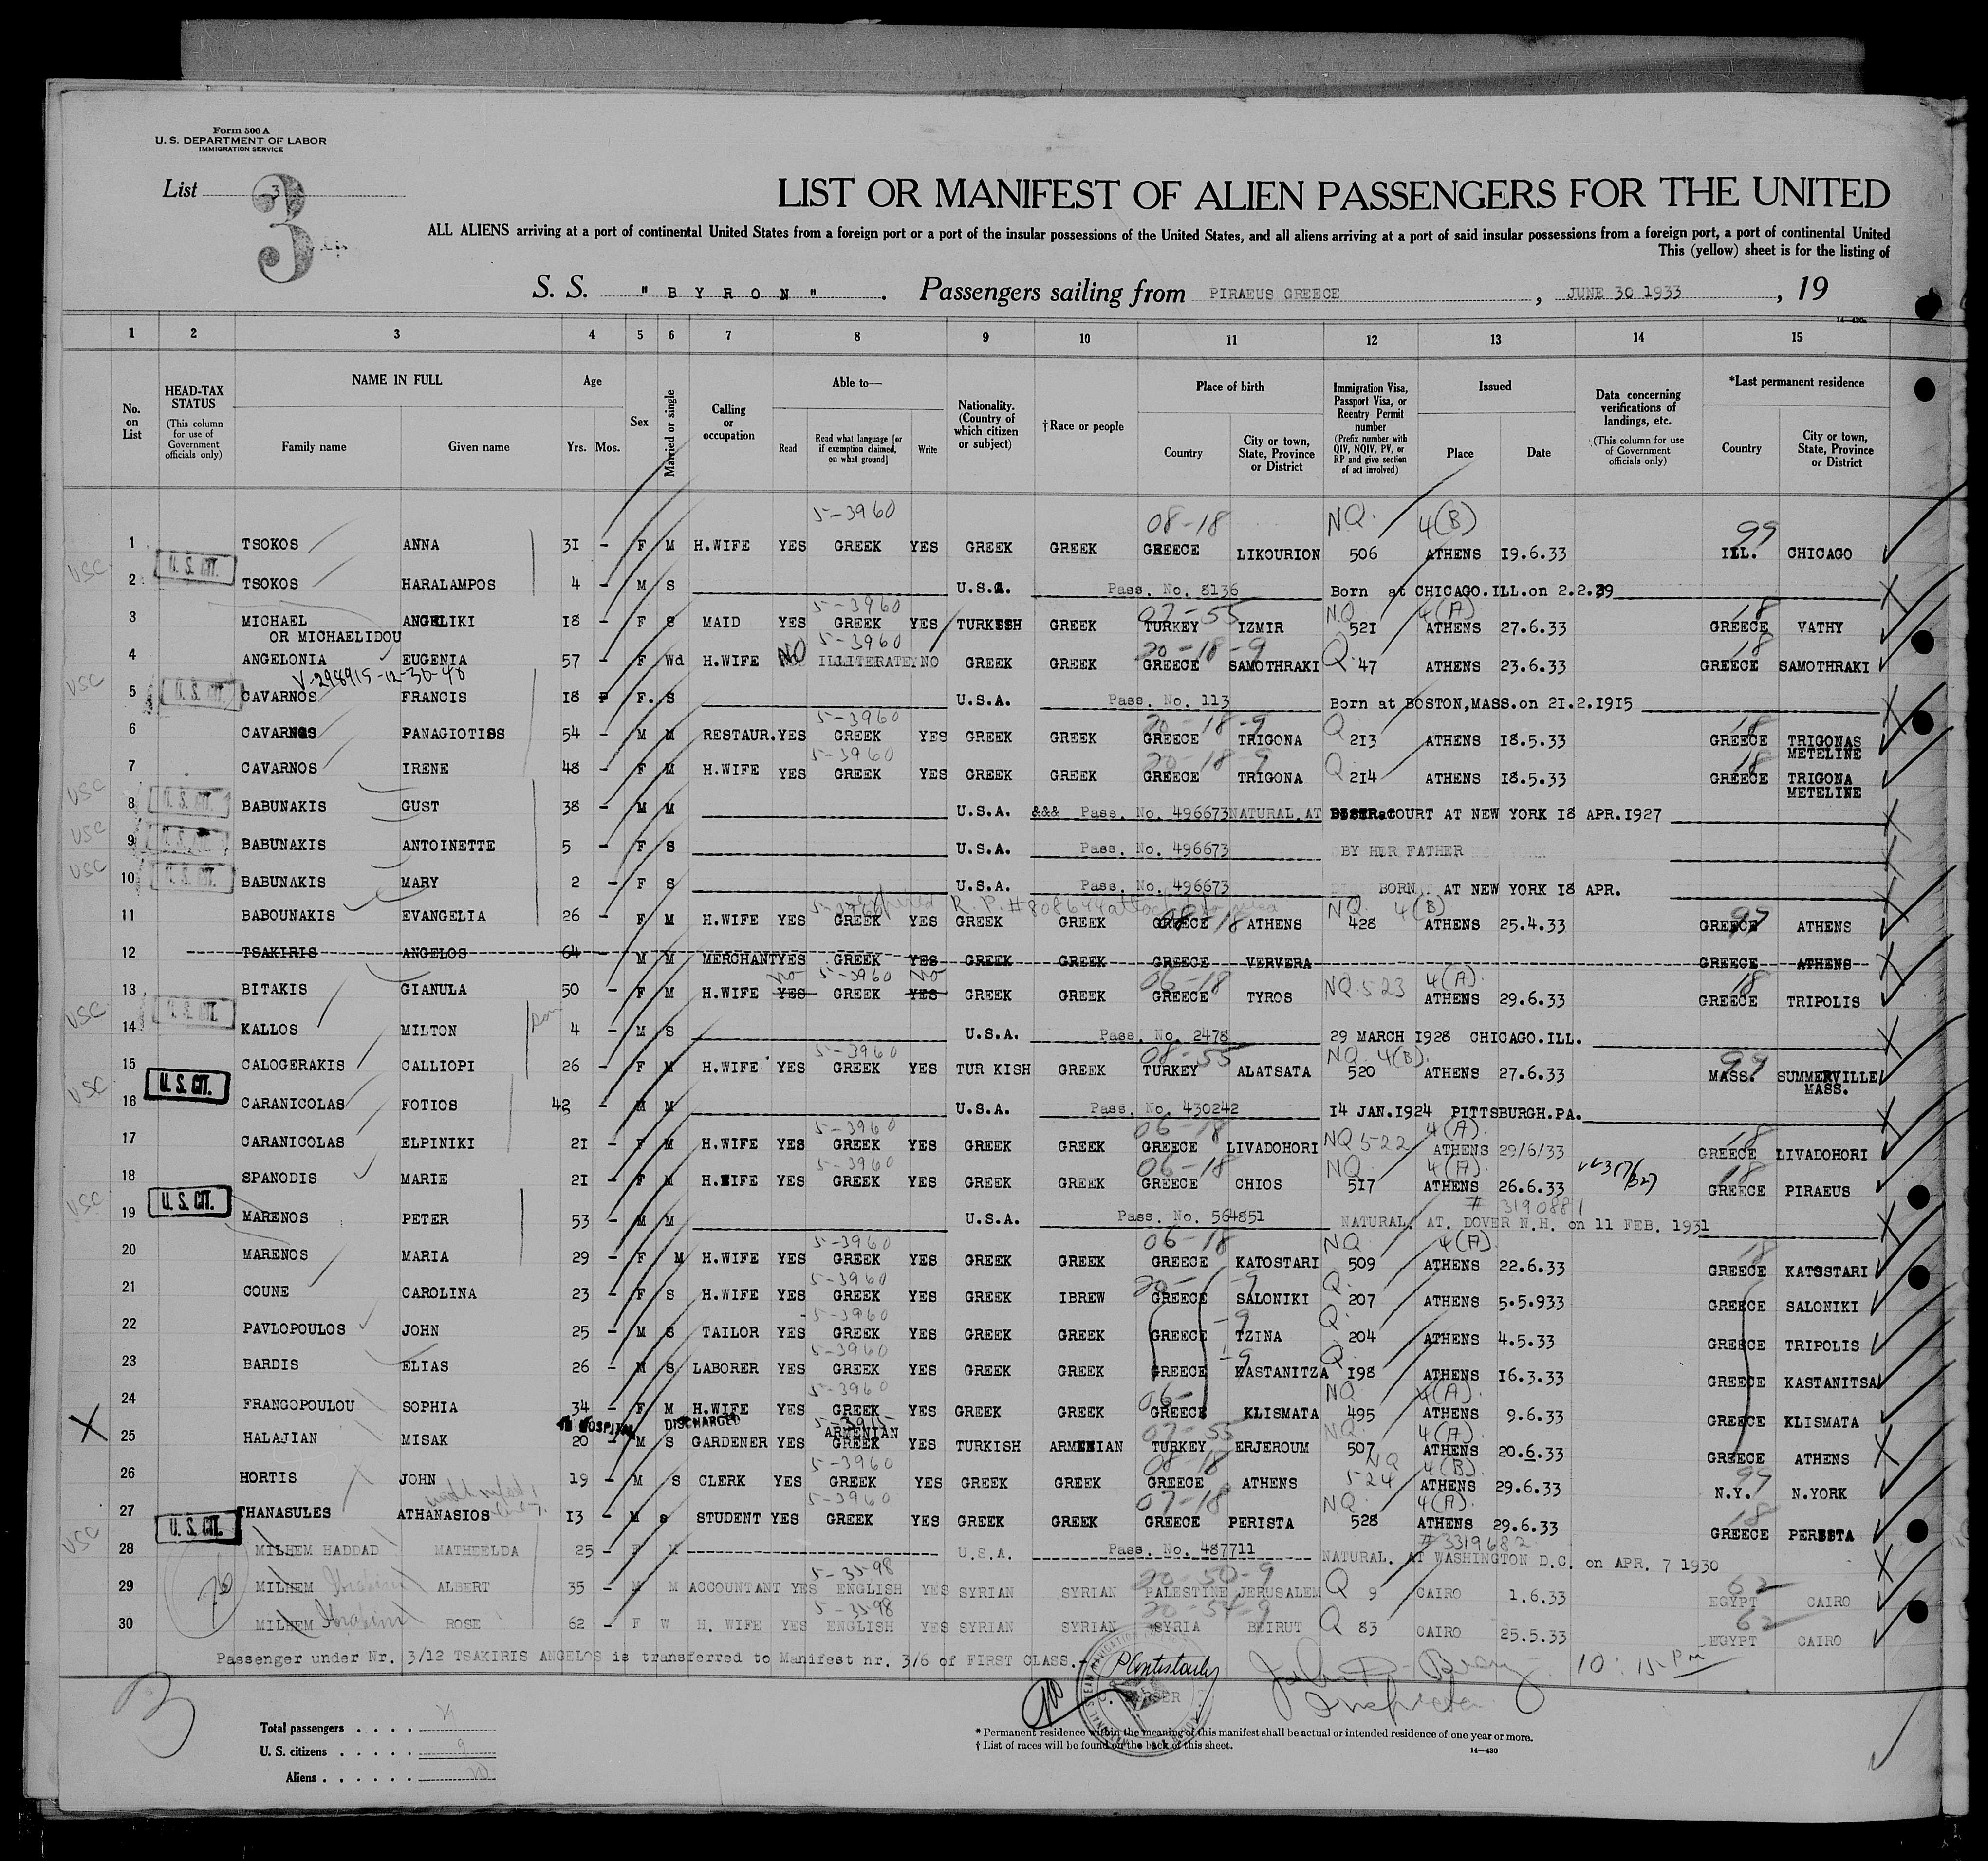 Form 500 A
U. S. DEPARTMENT OF LABOR
IMMIGRATION SERVICE
List 3
3
LIST OR MANIFEST OF ALIEN PASSENGERS FOR THE UNITED
ALL ALIENS arriving at a port of continental United States from a foreign port or a port of the insular possessions of the United States, and all aliens arriving at a port of said insular possessions from a foreign port, a port of continental United
This (yellow) sheet is for the listing of
S. S. "BYRON". Passengers sailing from PIRAEUS GREECE, JUNE 30 1933, 19
14—430a
1 2 3 4 5 6 7 8 9 10 11 12 13 14 15
No. on List
HEAD-TAX STATUS (This column for use of Government officials only)
NAME IN FULL Family name Given name
Age Yrs. Mos.
Sex
Married or single
Calling or occupation
Able to— Read Read what language [or if exemption claimed, on what ground] Write
Nationality. (Country of which citizen or subject)
†Race or people
Place of birth Country City or town, State, Province or District
Immigration Visa, Passport Visa, or Reentry Permit number (Prefix number with QIV, NQIV, PV, or RP and give section of act involved)
Issued Place Date
Data concerning verifications of landings, etc. (This column for use of Government officials only)
*Last permanent residence Country City or town, State, Province or District
5-3960 08-18 NQ. 4(B) 99
1 TSOKOS ANNA 31 - F M H.WIFE YES GREEK YES GREEK GREEK GREECE LIKOURION 506 ATHENS 19.6.33 ILL. CHICAGO
USC U. S. CIT.
2 TSOKOS HARALAMPOS 4 - M S U.S.A. Pass. No. 8136 Born at CHICAGO.ILL.on 2.2.29
5-3960 07-55 NQ 4(A) 18
3 MICHAEL ANGELIKI 18 - F S MAID YES GREEK YES TURKISH GREEK TURKEY IZMIR 521 ATHENS 27.6.33 GREECE VATHY
OR MICHAELIDOU
NO 5-3960 20-18-9 Q 18
4 ANGELONIA EUGENIA 57 - F Wd H.WIFE ILLITERATE NO GREEK GREEK GREECE SAMOTHRAKI 47 ATHENS 23.6.33 GREECE SAMOTHRAKI
V-298915-12-30-48
USC U. S. CIT.
5 CAVARNOS FRANCIS 18 F. S U.S.A. Pass. No. 113 Born at BOSTON,MASS.on 21.2.1915
5-3960 20-18-9 Q 18
6 CAVARNOS PANAGIOTIS 54 - M M RESTAUR. YES GREEK YES GREEK GREEK GREECE TRIGONA 213 ATHENS 18.5.33 GREECE TRIGONAS METELINE
5-3960 20-18-9 Q 18
7 CAVARNOS IRENE 48 - F M H.WIFE YES GREEK YES GREEK GREEK GREECE TRIGONA 214 ATHENS 18.5.33 GREECE TRIGONA METELINE
USC U. S. CIT.
8 BABUNAKIS GUST 38 - M M U.S.A. &&& Pass. No. 496673 NATURAL.AT COURT AT NEW YORK 18 APR.1927
USC U. S. CIT.
9 BABUNAKIS ANTOINETTE 5 - F S U.S.A. Pass. No. 496673 BY HER FATHER
USC U. S. CIT.
10 BABUNAKIS MARY 2 - F S U.S.A. Pass. No. 496673 BORN. AT NEW YORK 18 APR.
R.P.#808644 NQ. 4(B) 99
11 BABOUNAKIS EVANGELIA 26 - F M H.WIFE YES GREEK YES GREEK GREEK GREECE ATHENS 428 ATHENS 25.4.33 GREECE ATHENS
12 TSAKIRIS ANGELOS 64 M M MERCHANT YES GREEK YES GREEK GREEK GREECE VERVERA GREECE ATHENS
No 5-3960 No 06-18 4(A). 18
13 BITAKIS GIANULA 50 - F M H.WIFE YES GREEK YES GREEK GREEK GREECE TYROS NQ 523 ATHENS 29.6.33 GREECE TRIPOLIS
USC U. S. CIT. son
14 KALLOS MILTON 4 - M S U.S.A. Pass. No. 2478 29 MARCH 1928 CHICAGO.ILL.
5-3960 08-55 NQ. 4(B). 99
15 CALOGERAKIS CALLIOPI 26 - F M H.WIFE YES GREEK YES TUR KISH GREEK TURKEY ALATSATA 520 ATHENS 27.6.33 MASS. SUMMERVILLE MASS.
USC U. S. CIT.
16 CARANICOLAS FOTIOS 42 - M M U.S.A. Pass. No. 430242 14 JAN.1924 PITTSBURGH.PA.
5-3960 06-18 4(A). 18
17 CARANICOLAS ELPINIKI 21 - F M H.WIFE YES GREEK YES GREEK GREEK GREECE LIVADOHORI NQ 522 ATHENS 29/6/33 GREECE LIVADOHORI
5-3960 06-18 NQ 4(A). 18
18 SPANODIS MARIE 21 - F M H.WIFE YES GREEK YES GREEK GREEK GREECE CHIOS 517 ATHENS 26.6.33 GREECE PIRAEUS
USC U. S. CIT. # 3190881
19 MARENOS PETER 53 - M M U.S.A. Pass. No. 564851 NATURAL. AT. DOVER N.H. on 11 FEB. 1931
5-3960 06-18 NQ 4(A) 18
20 MARENOS MARIA 29 - F M H.WIFE YES GREEK YES GREEK GREEK GREECE KATOSTARI 509 ATHENS 22.6.33 GREECE KATOSTARI
5-3960 20- -9 Q.
21 COUNE CAROLINA 23 - F S H.WIFE YES GREEK YES GREEK IBREW GREECE SALONIKI 207 ATHENS 5.5.933 GREECE SALONIKI
5-3960 -9 Q.
22 PAVLOPOULOS JOHN 25 - M S TAILOR YES GREEK YES GREEK GREEK GREECE TZINA 204 ATHENS 4.5.33 GREECE TRIPOLIS
5-3960 -9 Q
23 BARDIS ELIAS 26 - M S LABORER YES GREEK YES GREEK GREEK GREECE KASTANITZA 198 ATHENS 16.3.33 GREECE KASTANITSA
5-3960 06- NQ 4(A).
24 FRANGOPOULOU SOPHIA 34 - F M H.WIFE YES GREEK YES GREEK GREEK GREECE KLISMATA 495 ATHENS 9.6.33 GREECE KLISMATA
X HOSPITAL DISCHARGED 5-3915 ARMENIAN 07-55 NQ. 4(A)
25 HALAJIAN MISAK 20 - M S GARDENER YES GREEK YES TURKISH ARMENIAN TURKEY ERJEROUM 507 ATHENS 20.6.33 GREECE ATHENS
5-3960 08-18 NQ 4(B). 99
26 HORTIS JOHN 19 - M S CLERK YES GREEK YES GREEK GREEK GREECE ATHENS 524 ATHENS 29.6.33 N.Y. N.YORK
5-3960 07-18 NQ 4(A). 18
27 THANASULES ATHANASIOS 13 - M S STUDENT YES GREEK YES GREEK GREEK GREECE PERISTA 528 ATHENS 29.6.33 GREECE PERISTA
USC U. S. CIT. # 3319682
28 MILHEM HADDAD MATHEELDA 25 - F M U.S.A. Pass. No. 487711 NATURAL. AT WASHINGTON D.C. on APR. 7 1930
5-3598 20-50-9 62
29 MILHEM Ibrahim ALBERT 35 - M M ACCOUNTANT YES ENGLISH YES SYRIAN SYRIAN PALESTINE JERUSALEM Q 9 CAIRO 1.6.33 EGYPT CAIRO
5-3598 20-54-9 62
30 MILHEM Ibrahim ROSE 62 - F W H. WIFE YES ENGLISH YES SYRIAN SYRIAN SYRIA BEIRUT Q 83 CAIRO 25.5.33 EGYPT CAIRO
Passenger under Nr. 3/12 TSAKIRIS ANGELOS is transferred to Manifest nr. 3/6 of FIRST CLASS.-
Inspector 10:15 Pm
Total passengers . . . .
U. S. citizens . . . . . 9
Aliens . . . . . .
* Permanent residence within the meaning of this manifest shall be actual or intended residence of one year or more.
† List of races will be found on the back of this sheet.
14—430